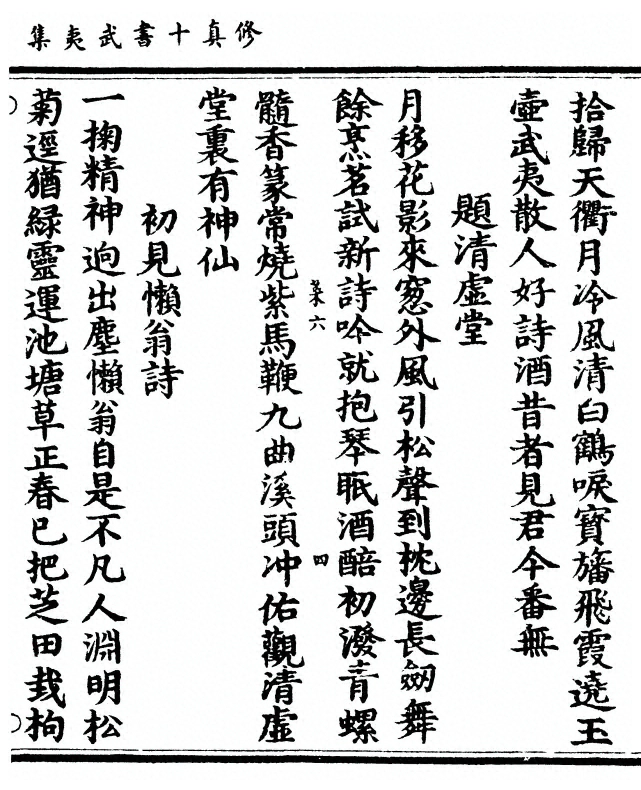 修真十書武夷集
拾歸天衢月冷風清白鶴唳寶旛飛霞遶玉
壺武夷散人好詩酒昔者見君今番無
題清虛堂
月移花影來窓外風引松聲到枕邊長劔舞
餘烹茗試新詩吟就抱琴眠酒醅初潑青螺
菜六 四
髓香篆常燒紫馬鞭九曲溪頭冲佑觀清虛
堂裏有神仙
初見懶翁詩
一掬精神逈出塵懶翁自是不凡人淵明松
菊逕猶綠靈運池塘草正春已把芝田栽枸